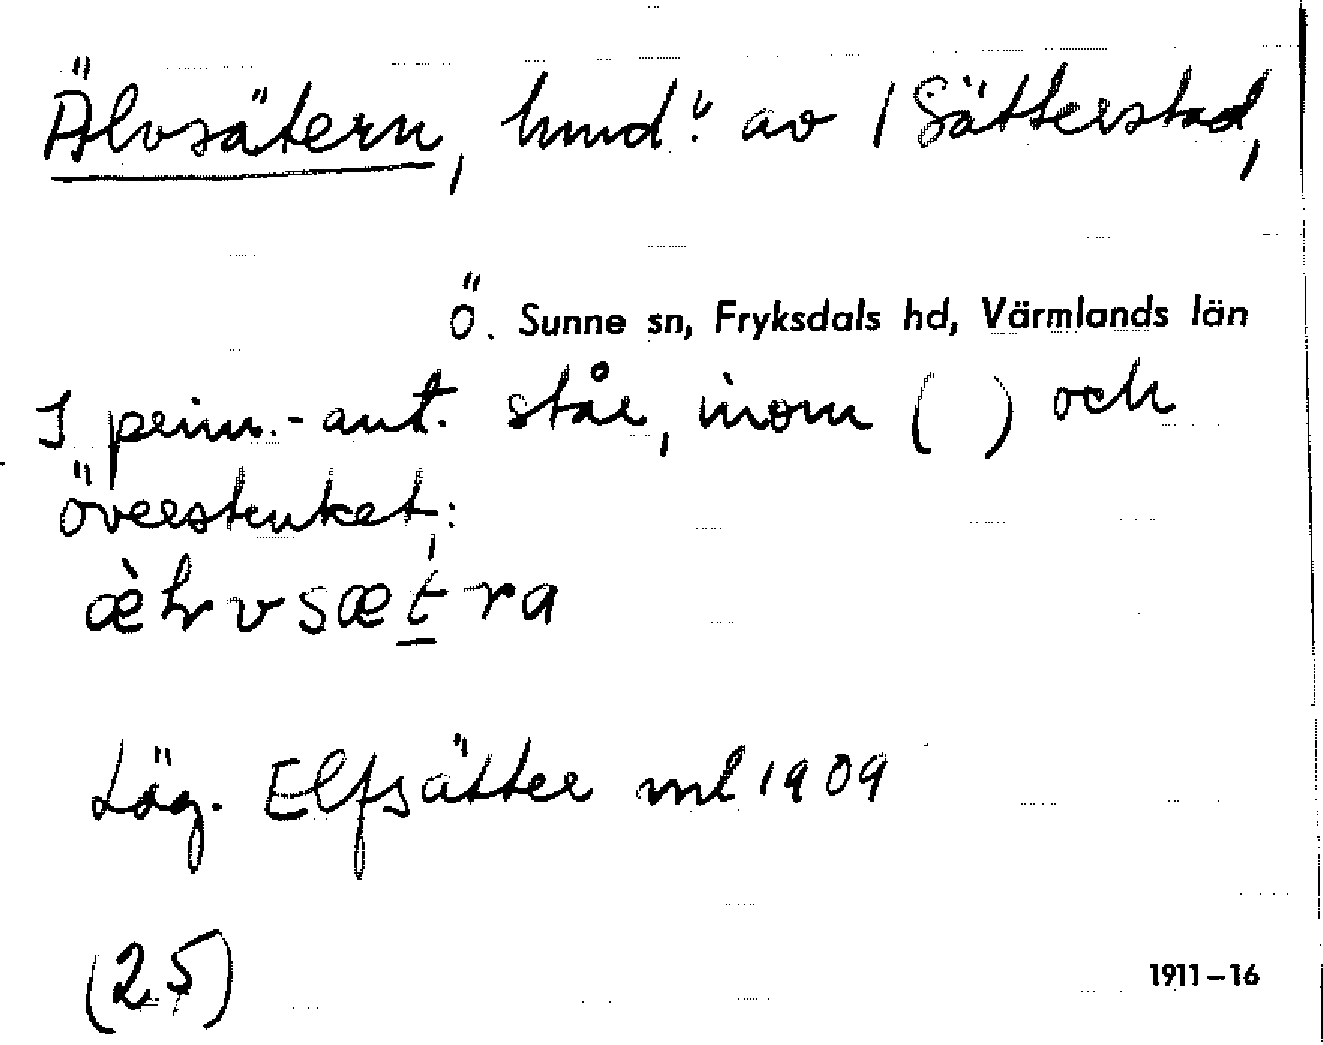 Älvsätern, hmd. av 1 Sätterstad,
Ö. Sunne sn, Fryksdals hd, Värmlands län
I prim.-ant. står, inom ( ) och
överstruket,:
Läg. Elfsätter ml 1909
(25)
1911–16